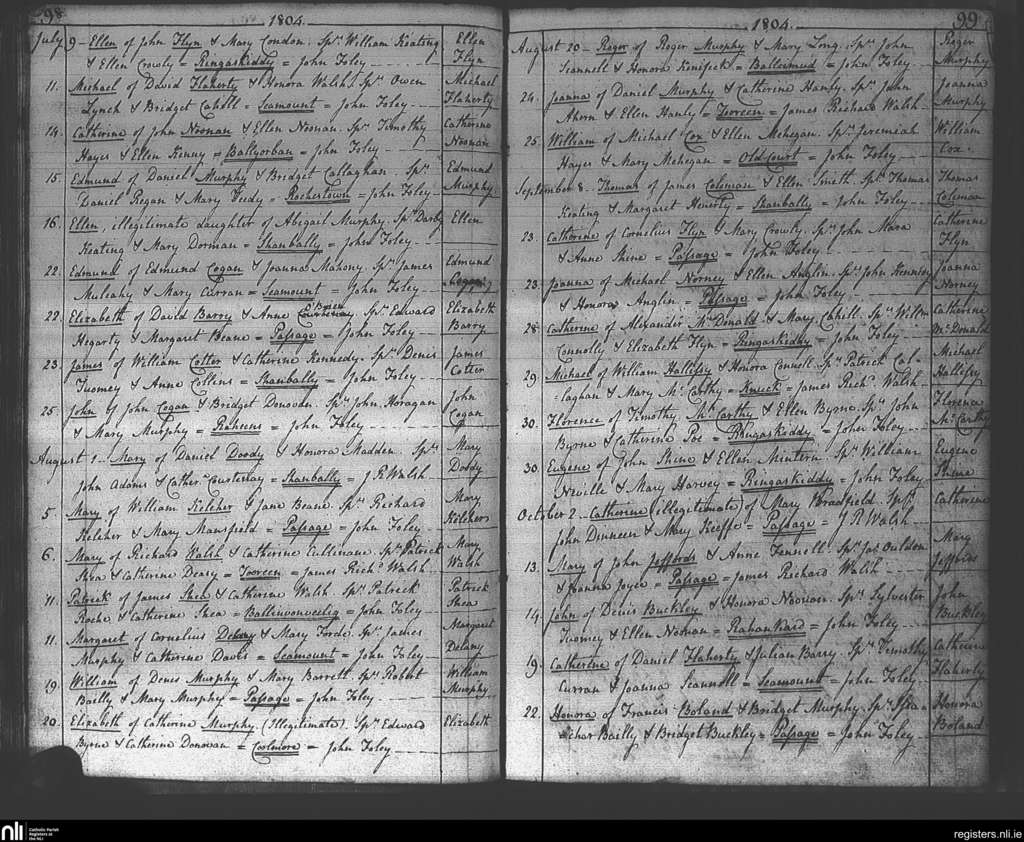 98
1804.
July 9 - Ellen of John Flyn & Mary Condon. Sprs William Keating Ellen
& Ellen Crowly = Ringaskiddy = John Foley Flyn
11. Michael of David Flaherty & Honora Walsh. Sprs Owen Michael
Lynch & Bridget Cahill = Seamount = John Foley Flaherty
14. Catherine of John Noonan & Ellen Noonan. Sprs Timothy Catherine
Hayes & Ellen Kenny = Ballyorban = John Foley Noonan
15. Edmund of Daniel Murphy & Bridget Callaghan. Sprs Edmund
Daniel Regan & Mary = Rochestown = John Foley Murphy
16. Ellen, illegitimate daughter of Abigail Murphy. Sprs Darby Ellen
Keating & Mary Dorman = Shanbally = John Foley
22. Edmund of Edmund Cogan & Joanna Mahony. Sprs James Edmund
Mulcahy & Mary Curran = Seamount = John Foley Cogan
22. Elizabeth of David Barry & Anne OBrien Sprs Edward Elizabeth
Hegarty & Margaret Beane = Passage = John Foley Barry
23. James of William Cotter & Catherine Kennedy. Sprs Denis James
Twomey & Anne Collins = Shanbally = John Foley Cotter
25. John of John Cogan & Bridget Donovan. Sprs John Horagan John
& Mary Murphy = Raheens = John Foley Cogan
August 1. Mary of Daniel Doody & Honora Madden. Sprs Mary
John Adams & Cather. Courtenay = Shanbally = J R Walsh Doody
5. Mary of William Kelcher & Jane Beane. Sprs Richard Mary
Kelcher & Mary Mansfield = Passage = John Foley Kelcher
6. Mary of Richard Walsh & Catherine Cullinane. Sprs Patrick Mary
Shea & Catherine Deasy = Tooreen = James Richd Walsh Walsh
11. Patrick of James Shea & Catherine Walsh. Sprs Patrick Patrick
Roche & Catherine Shea = = John Foley Shea
11. Margaret of Cornelius Delany & Mary Forde. Sprs James Margaret
Murphy & Catherine Davis = Seamount = John Foley Delany
19. William of Denis Murphy & Mary Barrett. Sprs Robert William
Bailly & Mary Murphy = Passage = John Foley Murphy
20. Elizabeth of Catherine Murphy (Illegitimate). Sprs Edward Elizabeth
Byrne & Catherine Donovan = Coolmore = John Foley
1804. 99
August 20 - Roger of Roger Murphy & Mary Long. Sprs John Roger
Scannell & Honora Kenifeck = = John Foley Murphy
24. Joanna of Daniel Murphy & Catherine Hanly. Sprs John Joanna
Ahern & Ellen Hanly = Tooreen = James Richard Walsh Murphy
25. William of Michael Cox & Ellen Mehegan. Sprs Jeremiah William
Hayes & Mary Mehegan = Old Court = John Foley Cox.
September 8. Thomas of James Coleman & Ellen Smith. Sprs Thomas Thomas
Keating & Margaret = Shanbally = John Foley Coleman
23. Catherine of Cornelius Flyn & Mary Crowly. Sprs John Mara Catherine
& Anne Shine = Passage = John Foley Flyn
23. Joanna of Michael Norney & Ellen Anglin. Sprs John Kenney Joanna
& Honora Anglin = Passage = John Foley Norney
28. Catherine of Alexander McDonald & Mary Cahill. Sprs Willm Catherine
Connolly & Elizabeth Flyn = Ringaskiddy = John Foley McDonald
29. Michael of William Hallessy & Honora Connell. Sprs Patrick Cal= Michael
=laghan & Mary McCarthy = = James Richd Walsh Hallessy
30. Florence of Timothy McCarthy & Ellen Byrne. Sprs John Florence
Byrne & Catherine Poe = Rhugaskiddy = John Foley McCarthy
30. Eugene of John Shine & Ellen Mintern. Sprs William Eugene
Neville & Mary Harvey = Ringaskiddy = John Foley Shine
October 2. Catherine (illegitimate) of Mary Broadfield. Sprs Catherine
John Dinneen & Mary Keeffe = Passage = J R Walsh
13. Mary of John Jeffords & Anne Fennell. Sprs Jas Ouldon Mary
& Joanna Joyce = Passage = James Richard Walsh Jeffords
14. John of Denis Buckley & Honora Noonan. Sprs Sylvester John
Twomey & Ellen Noonan = = John Foley Buckley
19. Catherine of Daniel Flaherty & Julian Barry. Sprs Timothy Catherine
Curran & Joanna Scannell = Seamount = John Foley Flaherty
22. Honora of Francis Boland & Bridget Murphy. Sprs Honora
Bailly & Bridget Buckley = Passage = John Foley Boland
nli Catholic Parish
Registers at
the NLI
registers.nli.ie